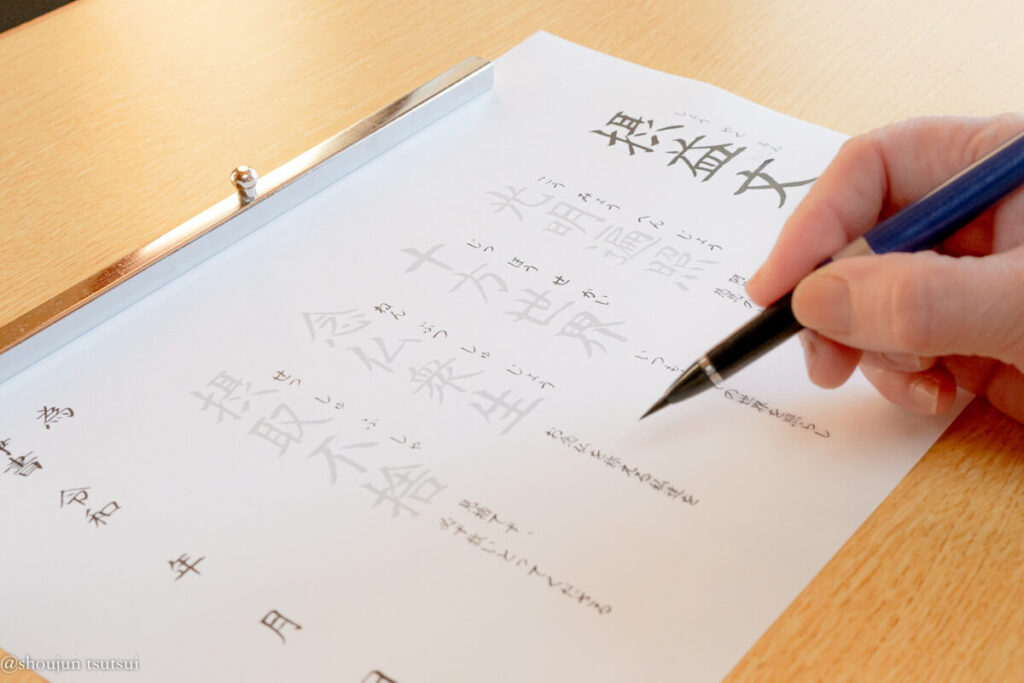 しょうやくもん
摂益文
こうみょうへんじょう
光明遍照
いつも
の世界を照らし
じっぽうせかい
十方世界
お念仏を称える私達を
ねんぶつしゅじょう
念仏衆生
見捨てず、
必ず救いとってくださる
せっしゅふしゃ
摂取不捨
為
令和 年 月
@shoujun tsutsui